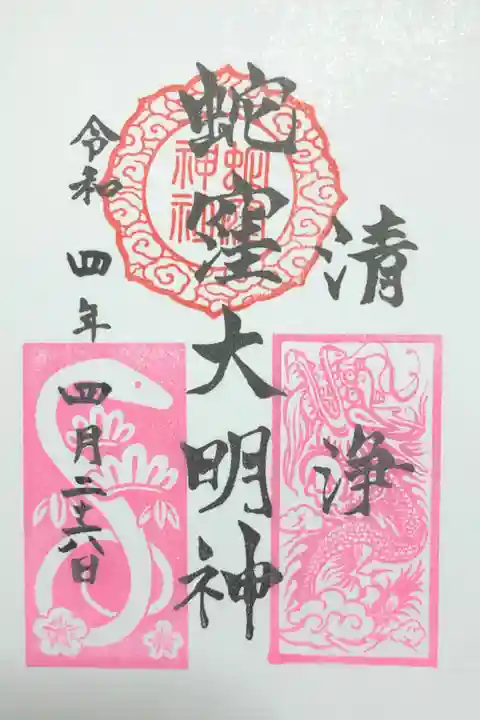 清浄
蛇窪大明神
蛇窪
神社
令和四年四月二十六日